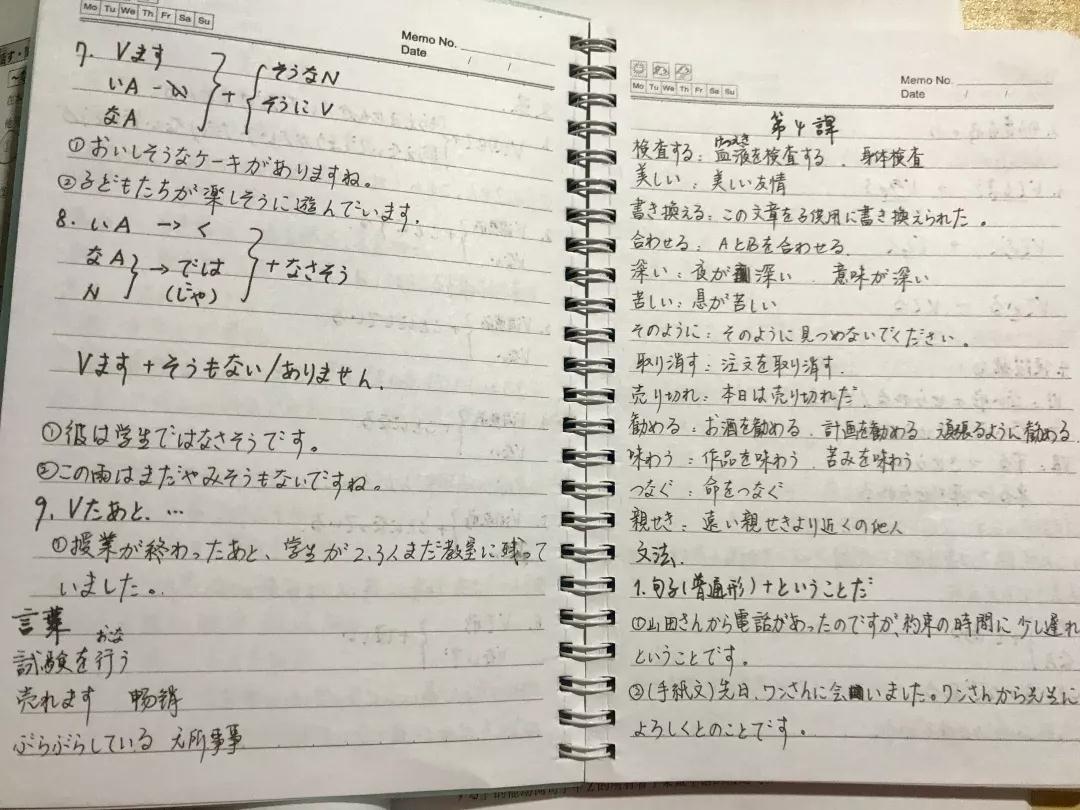 Mo Tu We Th Fr Sa Su
Memo No.
Date / /
7. Vます
いA -い
なA
+
そうなN
そうに V
①おいしそうなケーキがありますね。
②子どもたちが楽しそうに遊んでいます。
8. いA → く
なA
N
→ では
(じゃ)
+なさそう
Vます+そうもない/ありません.
①彼は学生ではなさそうです。
②この雨はまだやみそうもないですね。
9. Vたあと、…
①授業が終わったあと、学生が2.3人まだ教室に残って
いました。
言葉
おこな
試験を行う
売れます 畅销
ぶらぶらしている 无所事事
Mo Tu We Th Fr Sa Su
Memo No.
Date / /
第4課
けつえき
検査する:血液を検査する.身体検査
美しい:美しい友情
書き換える:この文章を子供用に書き換えられた。
合わせる:AとBを合わせる
深い:夜が深い.意味が深い
苦しい:息が苦しい
そのように:そのように見つめないでください。
取り消す:注文を取り消す.
売り切れ:本日は売り切れだ
勧める:お酒を勧める.計画を勧める.頑張るように勧める.
味わう:作品を味わう.苦みを味わう
つなぐ:命をつなぐ
親せき:遠い親せきより近くの他人
文法.
1.句子(普通形)+ということだ
①山田さんから電話があったのですが、約束の時間に少し遅れ
ということです。
②(手紙文)先日、ワンさんに会いました。ワンさんから先生に
よろしくとのことです。